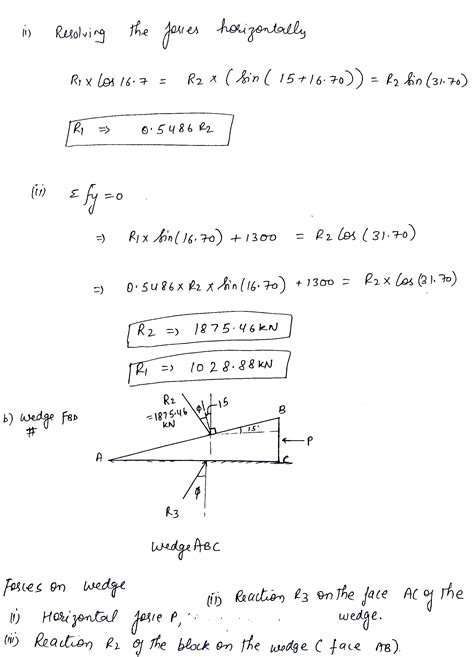 ii) Resolving the forces horizontally
R1 x Cos 16.7 = R2 x ( Sin ( 15+16.70)) = R2 Sin (31.70)
R1 ⇒ 0.5486 R2
(ii) Σ fy = 0
⇒ R1 x Sin(16.70) + 1300 = R2 Cos (31.70)
⇒ 0.5486 x R2 x Sin(16.70) + 1300 = R2 x Cos (31.70)
R2 ⇒ 1875.46 KN
R1 ⇒ 1028.88 KN
b) Wedge FBD
#
R2
=1875.46
KN
ϕ
15
B
15°
P
A
C
ϕ
R3
Wedge ABC
Forces on wedge
(i) Horizontal force P,
(ii) Reaction R3 on the face AC of the
wedge.
(iii) Reaction R2 of the block on the wedge ( face AB).